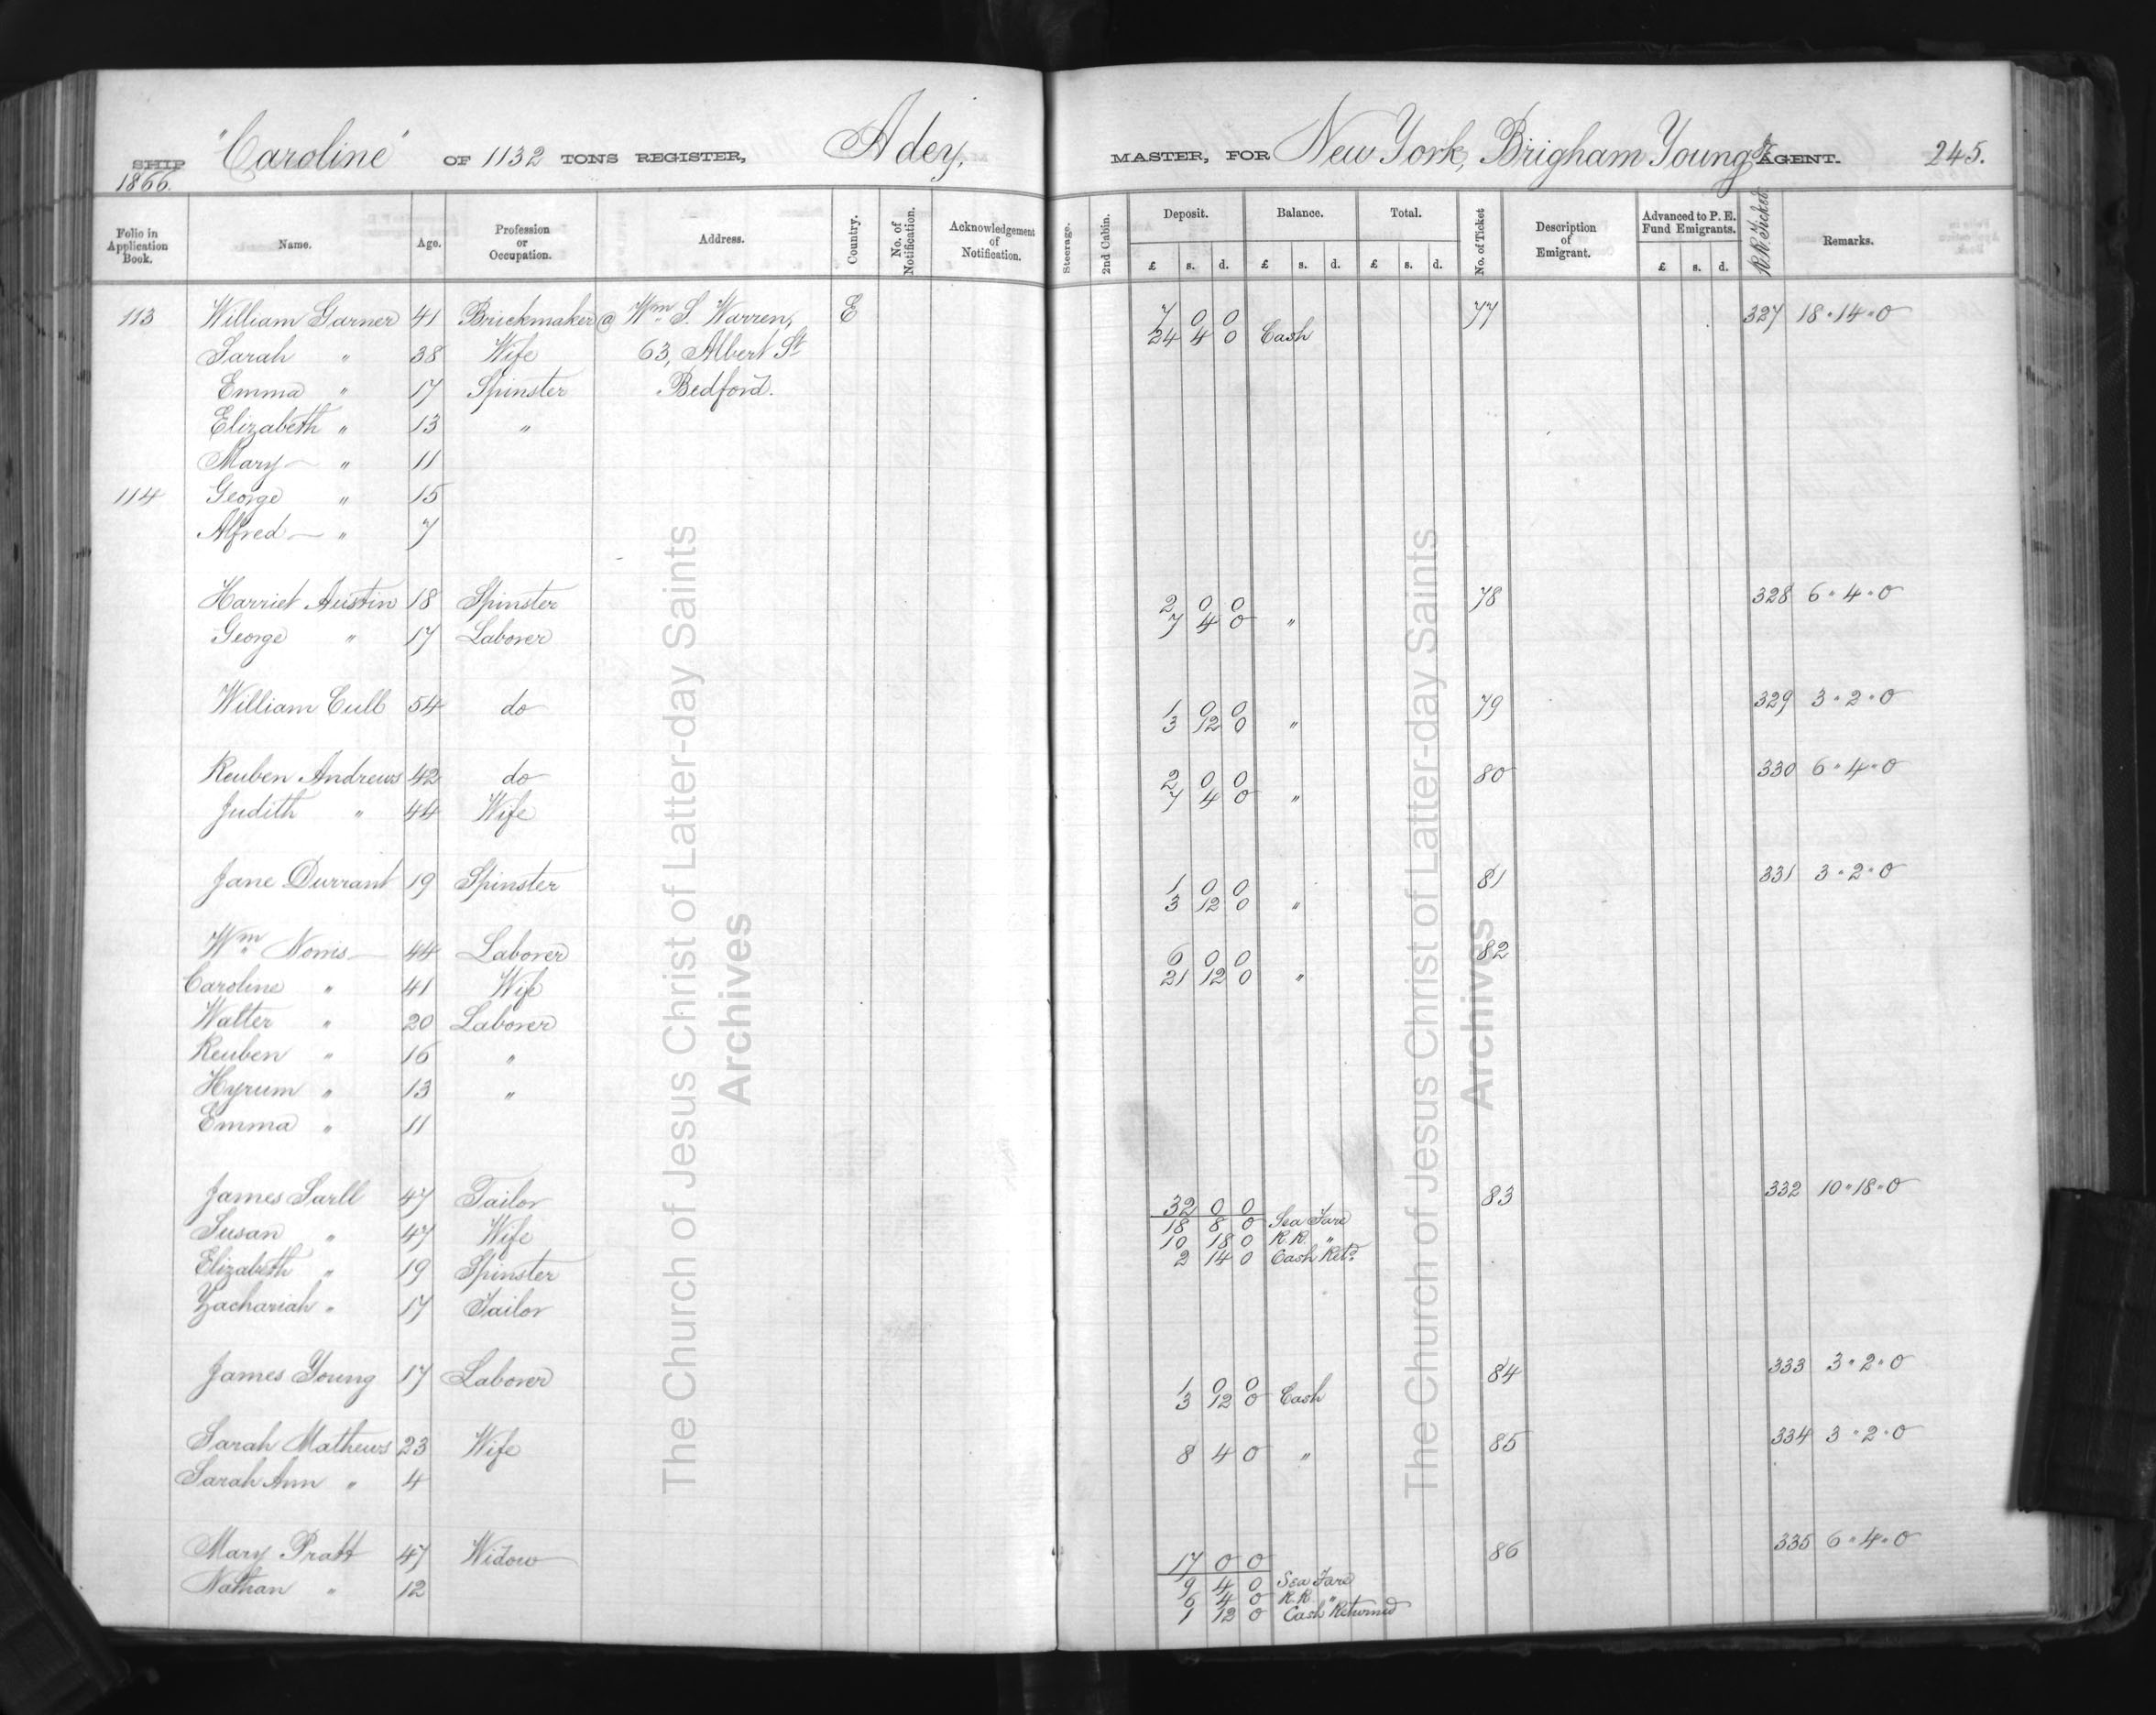 SHIP "Caroline" OF 1132 TONS REGISTER, Adey, MASTER, FOR New York, Brigham Young Jr AGENT. 245.
1866.
Folio in Application Book. Name. Age. Profession or Occupation. Address. Country. No. of Notification. Acknowledgement of Notification. Steerage. 2nd Cabin. Deposit. Balance. Total. No. of Ticket Description of Emigrant. Advanced to P. E. Fund Emigrants. R.R. Ticket. Remarks.
£ s. d. £ s. d. £ s. d. £ s. d.
113 William Garner 41 Brickmaker @ Wm S. Warren, E 7 0 0 77 327 18 " 14 " 0
24 4 0 Cash
Sarah " 38 Wife 63, Albert St
Emma " 17 Spinster Bedford.
Elizabeth " 13 "
Mary " 11
114 George " 15
Alfred " 7
Harriet Austin 18 Spinster 2 0 0 78 328 6 " 4 " 0
George " 17 Laborer 7 4 0 "
William Cull 54 do 1 0 0 79 329 3 " 2 " 0
3 12 0 "
Reuben Andrews 42 do 2 0 0 80 330 6 " 4 " 0
7 4 0 "
Judith " 44 Wife
Jane Durrant 19 Spinster 1 0 0 81 331 3 " 2 " 0
3 12 0 "
Wm Norris 44 Laborer 6 0 0 82
21 12 0 "
Caroline " 41 Wife
Walter " 20 Laborer
Reuben " 16 "
Hyrum " 13 "
Emma " 11
James Sarll 47 Tailor 32 0 0 83 332 10 " 18 " 0
18 8 0 Sea Fare
Susan " 47 Wife 10 18 0 R.R. "
2 14 0 Cash Retd
Elizabeth " 19 Spinster
Zachariah " 17 Tailor
James Young 17 Laborer 1 0 0 84 333 3 " 2 " 0
3 12 0 Cash
Sarah Mathews 23 Wife 8 4 0 " 85 334 3 " 2 " 0
Sarah Ann " 4
Mary Pratt 47 Widow 17 0 0 86 335 6 " 4 " 0
9 4 0 Sea Fare
Nathan " 12 6 4 0 R.R. "
1 12 0 Cash Returned
The Church of Jesus Christ of Latter-day Saints
Archives
The Church of Jesus Christ of Latter-day Saints
Archives